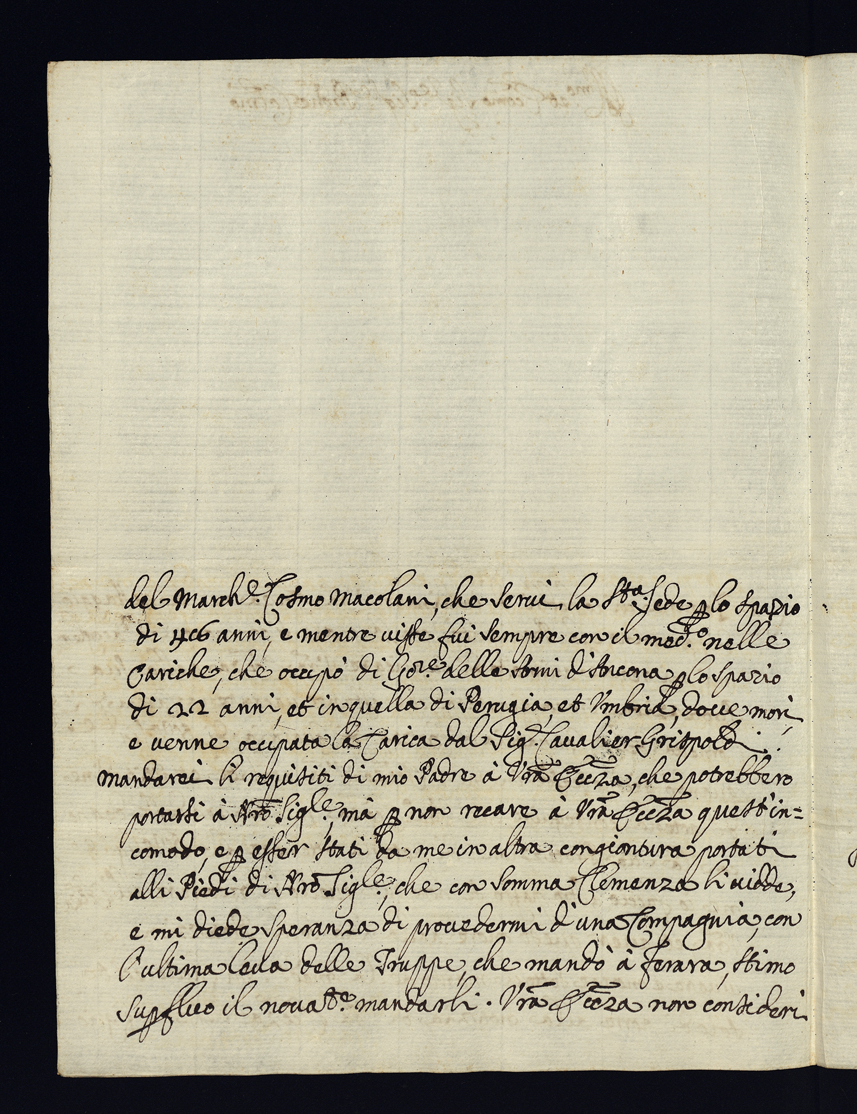 del March.e Cosmo Macolani, che servì la S.ta Sede p lo spazio
di 46 anni, e mentre visse fui sempre con il med.o nelle
Cariche, che occupò di Go.re delle Armi d'Ancona p lo spazio
di 22 anni, et in quella di Perugia, et Umbria, dove morì,
e venne occupata la Carica dal Sig.r Cavalier Grispoldi.
Mandarei li requisiti di mio Padre à Vrã Eccza, che potrebbero
portarsi à Nrõ Sig.re, mà p non recare à Vrã Eccza quest'in=
comodo, e p esser stati da me in altra congiontura portati
alli Piedi di Nrõ Sig.re, che con somma Clemenza li vidde,
e mi diede speranza di provedermi d'una Compagnia, con
l'ultima leva delle Truppe, che mandò à Ferara, stimo
supfluo il nova.te mandarli. Vrã Eccza non consideri